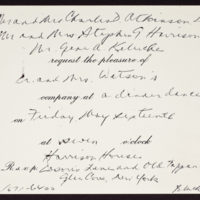 Mr and Mrs Charles D. Atkinson
Mr and Mrs Stephen G Harrison
Mr. Gene A
request the pleasure of
Dr. and Mrs. Watson's
company at a dinner dance
on Friday May Sixteenth
at seven o'clock
Harrison House
R.s.v.p. Lane and Old Tappan
Glen Cove, New York